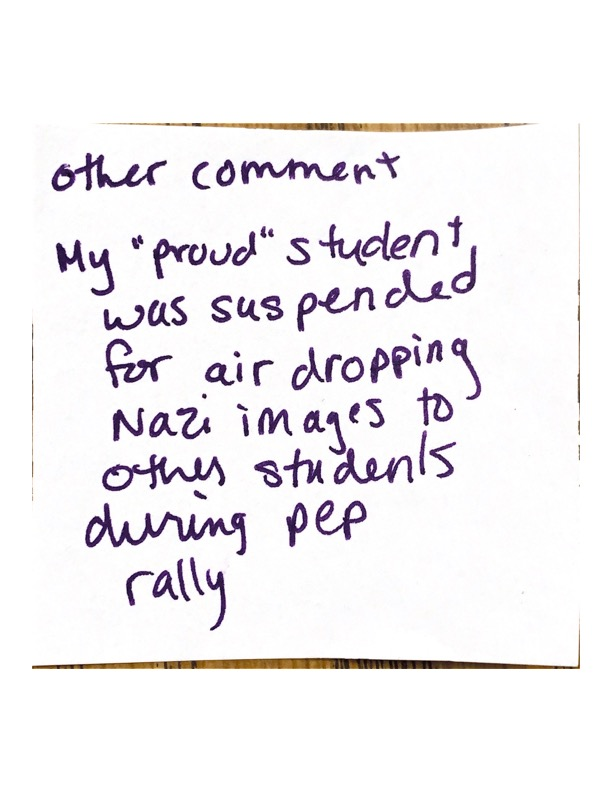 other comment
My "proud" student
was suspended
for air dropping
Nazi images to
other students
during pep
rally